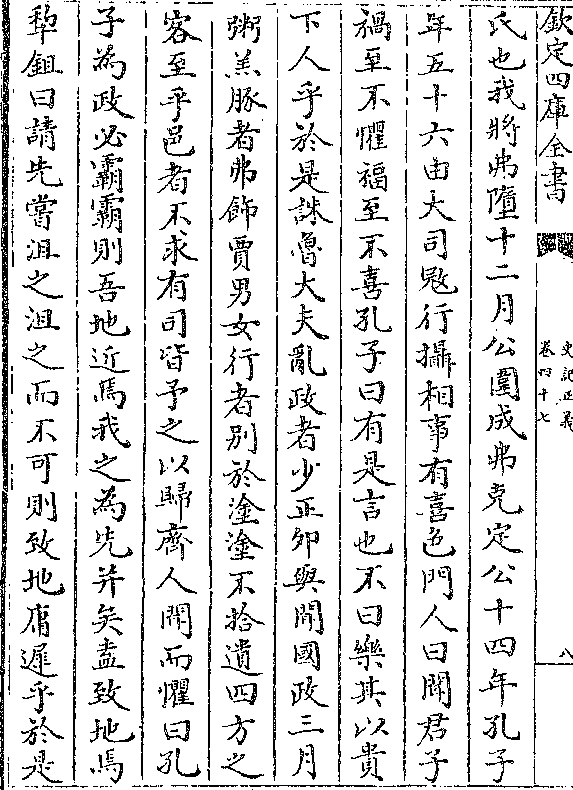 欽定四庫全書
史記正義
卷四十七
八
氏也我將弗墮十二月公圍成弗克定公十四年孔子
年五十六由大司㓂行攝相事有喜色門人曰聞君子
禍至不懼福至不喜孔子曰有是言也不曰樂其以貴
下人乎於是誅魯大夫亂政者少正夘與聞國政三月
粥羔豚者弗飾賈男女行者别於塗塗不拾遺四方之
客至乎邑者不求有司皆予之以歸齊人聞而懼曰孔
子為政必霸霸則吾地近焉我之為先并矣盍致地焉
犂鉏曰請先嘗沮之沮之而不可則致地庸遲乎於是